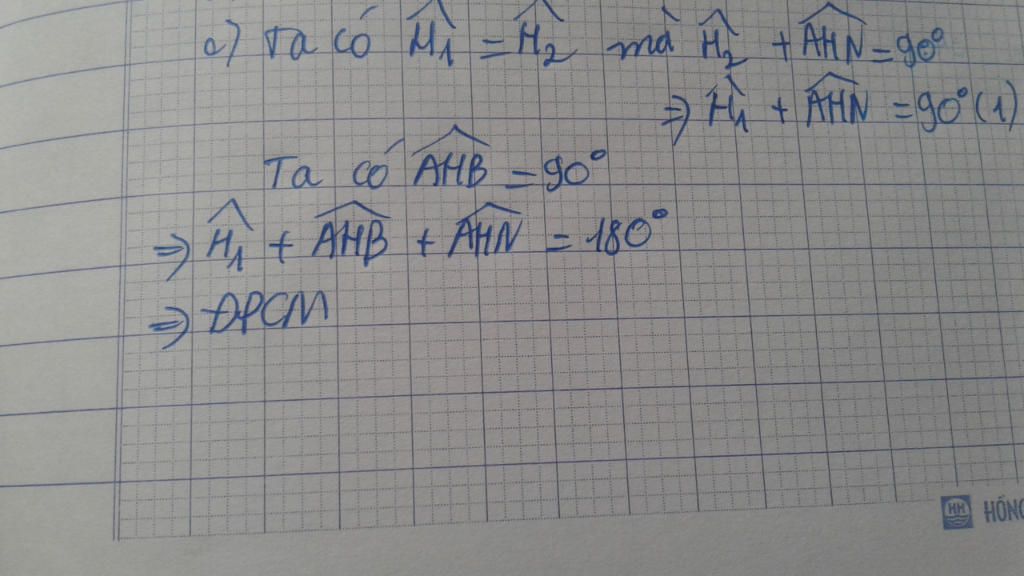 a) Ta có Ĥ₁ = Ĥ₂ mà Ĥ₂ + AHN̂ = 90°
=> Ĥ₁ + AHN̂ = 90° (1)
Ta có AHB̂ = 90°
=> Ĥ₁ + AHB̂ + AHN̂ = 180°
=> ĐPCM
HH